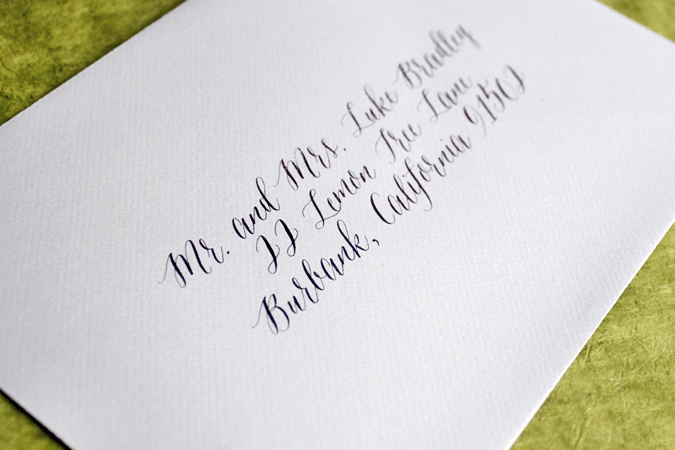 Mr. and Mrs. Luke Bradley
22 Lemon Tree Lane
Burbank, California 91502